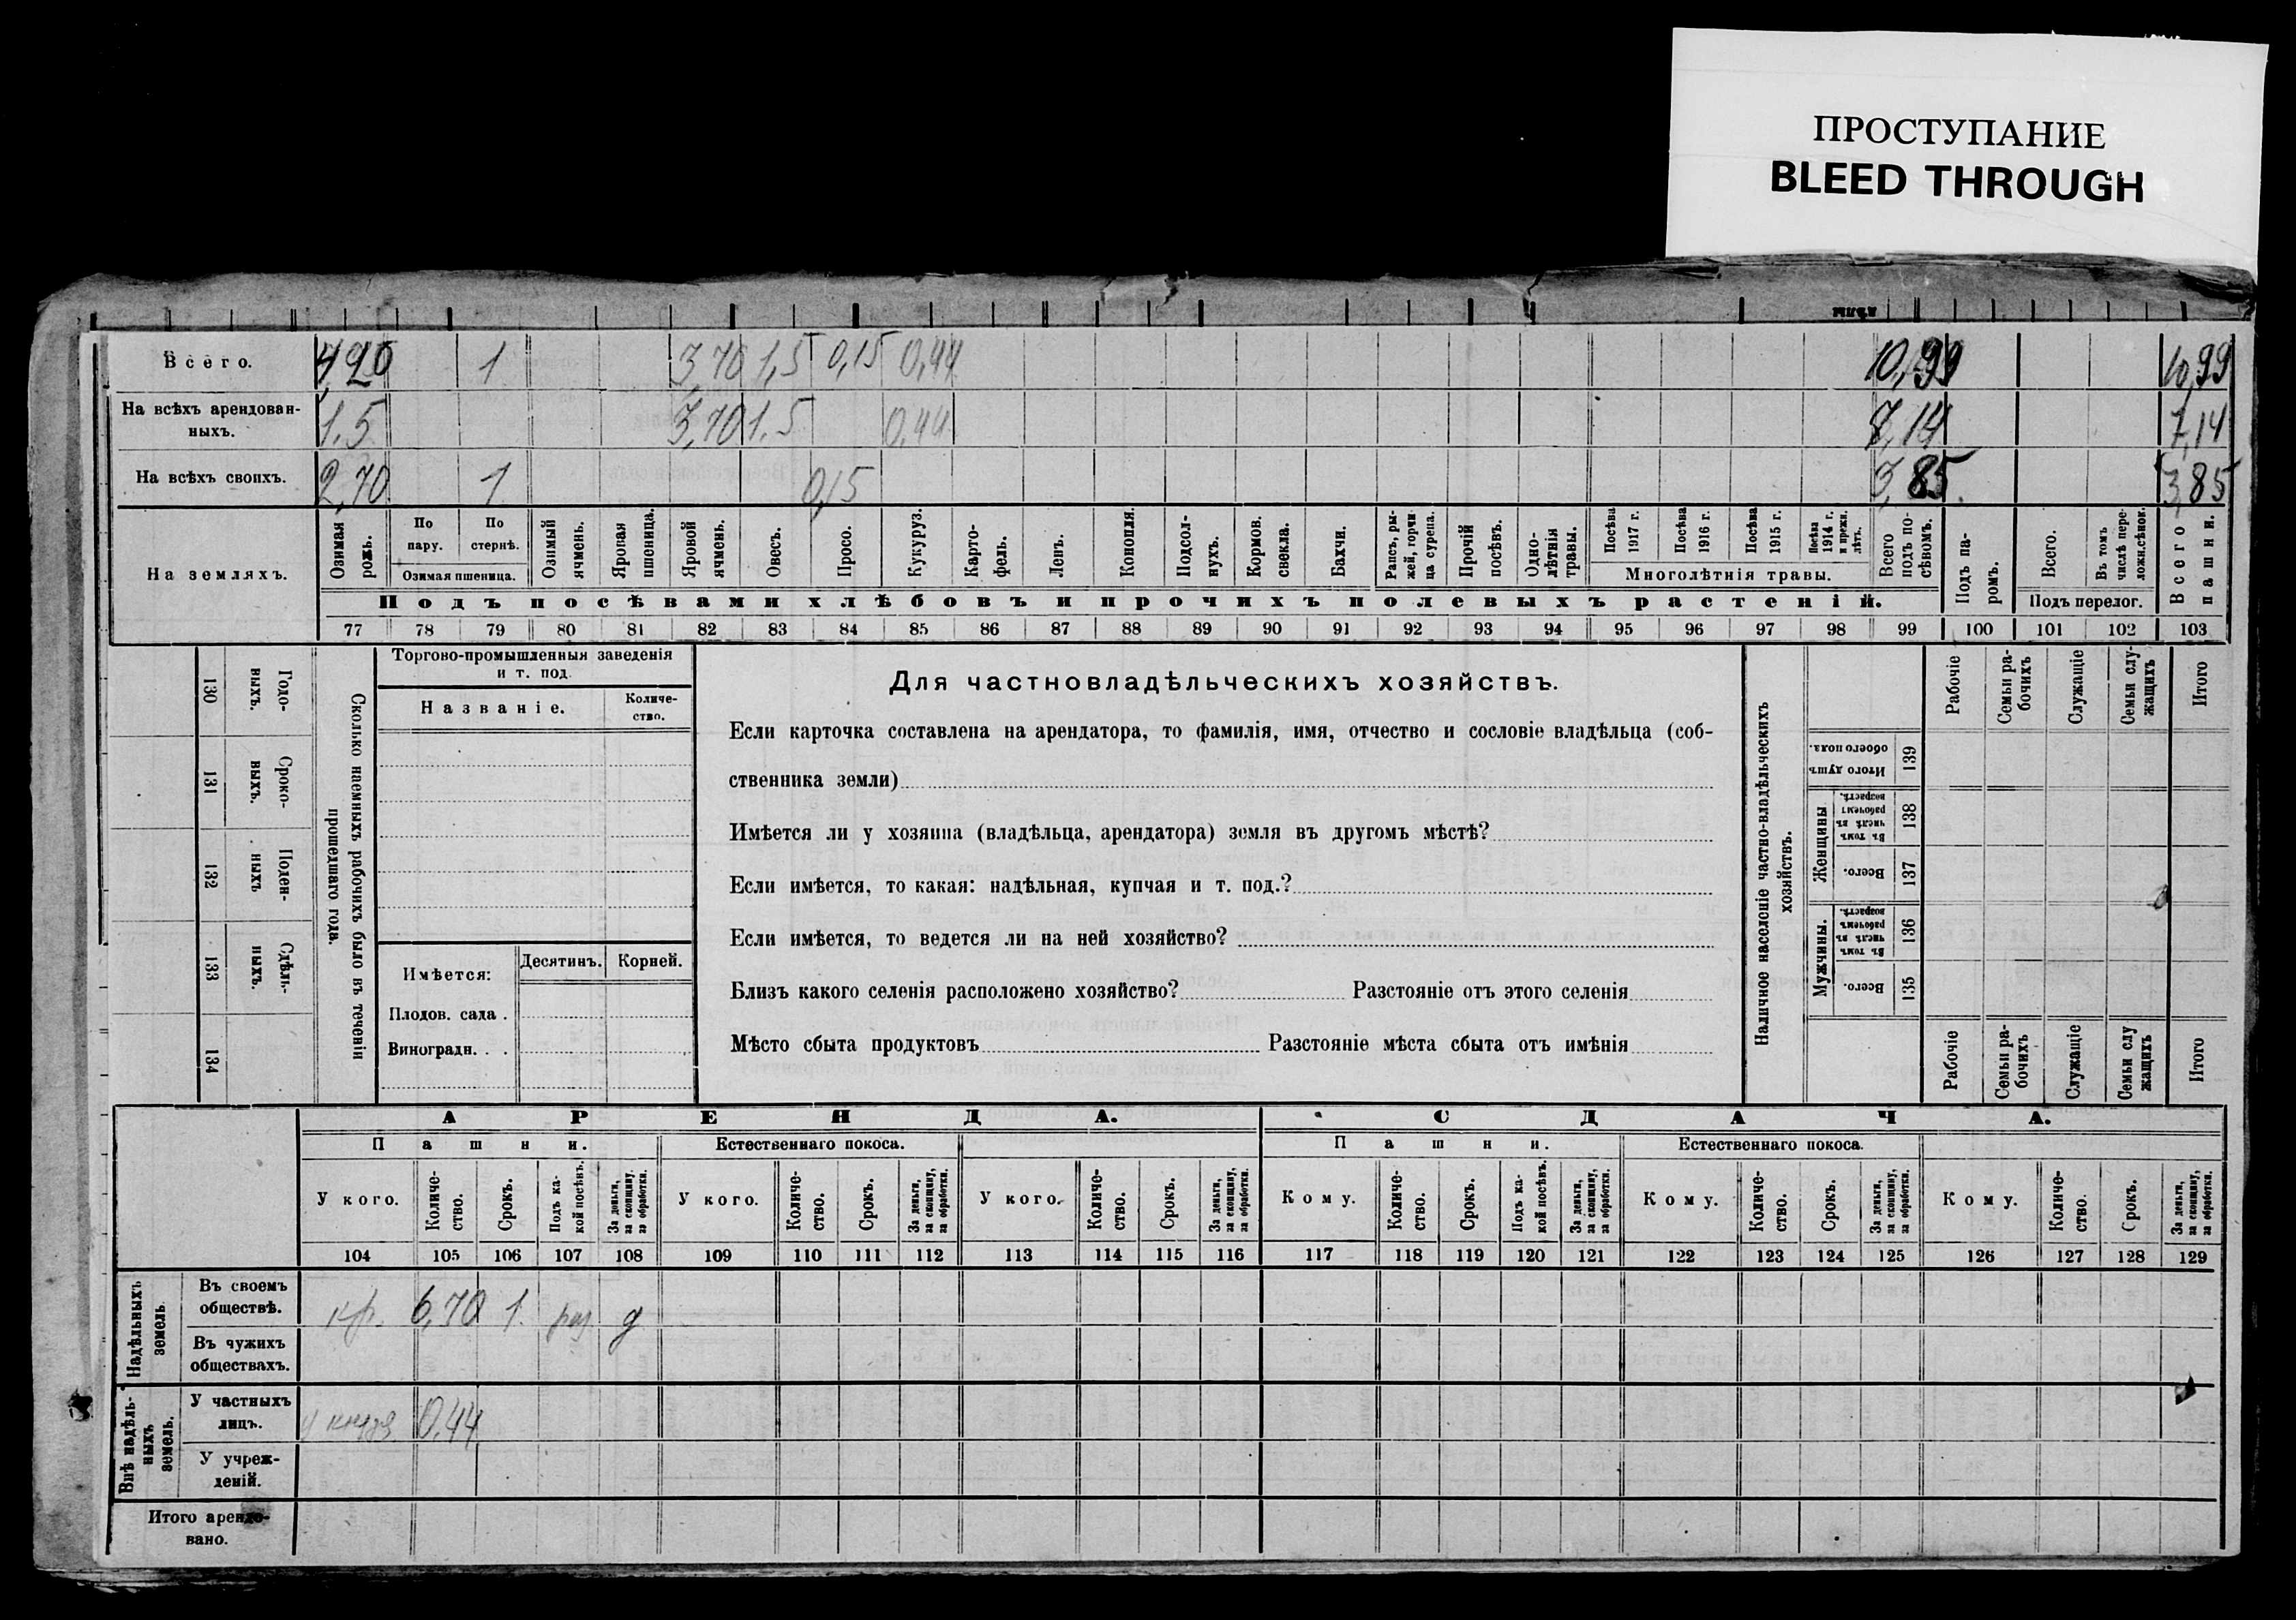 ПРОСТУПАНИЕ
BLEED THROUGH
Всего. 4,20 1 3,70 1,5 0,15 0,44 10,99 10,99
На всѣхъ арендован-
ныхъ. 1.5 3,70 1.5 0,44 7,14 7,14
На всѣхъ своихъ. 2,70 1 0,15 3,85 3,85
На земляхъ.
Озимая рожь.
По пару.
По стернѣ.
Озимая пшеница.
Озимый ячмень.
Яровая пшеница.
Яровой ячмень.
Овесъ.
Просо.
Кукуруз.
Карто-
фель.
Ленъ.
Конопля.
Подсол-
нухъ.
Кормов. свекла.
Бахчи.
Рапсъ, ры-
жей, горчи
ца сурепа.
Прочій посѣвъ.
Одно-
лѣтнія травы.
Посѣва 1917 г.
Посѣва 1916 г.
Посѣва 1915 г.
Посѣва 1914 г. и прежн. лѣтъ.
Многолѣтнія травы.
Всего подъ по-
сѣвомъ.
Подъ па-
ромъ.
Всего.
Въ томъ числѣ пере-
ложн.сѣнок.
Подъ перелог.
Всего пашни.
Подъ посѣвами хлѣбовъ и прочихъ полевыхъ растеній.
77 78 79 80 81 82 83 84 85 86 87 88 89 90 91 92 93 94 95 96 97 98 99 100 101 102 103
Годо-
выхъ.
130
Сроко-
выхъ.
131
Поден-
ныхъ
132
Сдѣль-
ныхъ.
133
134
Сколько наемныхъ рабочихъ было въ теченіи
прошедшаго года.
Торгово-промышленныя заведенія
и т. под.
Названіе.
Количе-
ство.
Имѣется: Десятинъ. Корней.
Плодов. сада .
Виноградн. . .
Для частновладѣльческихъ хозяйствъ.
Если карточка составлена на арендатора, то фамилія, имя, отчество и сословіе владѣльца (соб-
ственника земли)
Имѣется ли у хозяина (владѣльца, арендатора) земля въ другомъ мѣстѣ?
Если имѣется, то какая: надѣльная, купчая и т. под.?
Если имѣется, то ведется ли на ней хозяйство?
Близъ какого селенія расположено хозяйство? Разстояніе отъ этого селенія
Мѣсто сбыта продуктовъ Разстояніе мѣста сбыта отъ имѣнія
Наличное населеніе частно-владѣльческихъ
хозяйствъ.
Рабочіе
Семьи ра-
бочихъ
Служащіе
Семьи слу-
жащихъ
Итого
Итого душъ обоего пола.
139
Женщины
Въ томъ числѣ въ рабочемъ возрастѣ.
138
Всего.
137
Мужчины.
Въ томъ числѣ въ рабочемъ возрастѣ.
136
Всего.
135
Рабочіе
Семьи ра-
бочихъ
Служащіе
Семьи слу
жащихъ
Итого
АРЕНДА. СДАЧА.
Пашни. Естественнаго покоса. Пашни. Естественнаго покоса.
У кого.
Количе-
ство.
Срокъ.
Подъ ка-
кой посѣвъ.
За деньги, за скопщину, за обработки.
У кого.
Количе-
ство.
Срокъ.
За деньги, за скопщину, за обработки.
У кого.
Количе-
ство.
Срокъ.
За деньги, за скопщину, за обработки.
Кому.
Количе-
ство.
Срокъ.
Подъ ка-
кой посѣвъ.
За деньги, за скопщину, за обработки.
Кому.
Количе-
ство.
Срокъ.
За деньги, за скопщину, за обработки.
Кому.
Количе-
ство.
Срокъ.
За деньги, за скопщину, за обработки.
104 105 106 107 108 109 110 111 112 113 114 115 116 117 118 119 120 121 122 123 124 125 126 127 128 129
Надѣльныхъ
земель.
Въ своемъ
обществѣ. кр. 6,70 1. раз д
Въ чужихъ
обществахъ.
Внѣ надѣль-
ныхъ
земель.
У частныхъ
лицъ. у князя 0,44
У учреж-
деній.
Итого арендо-
вано.